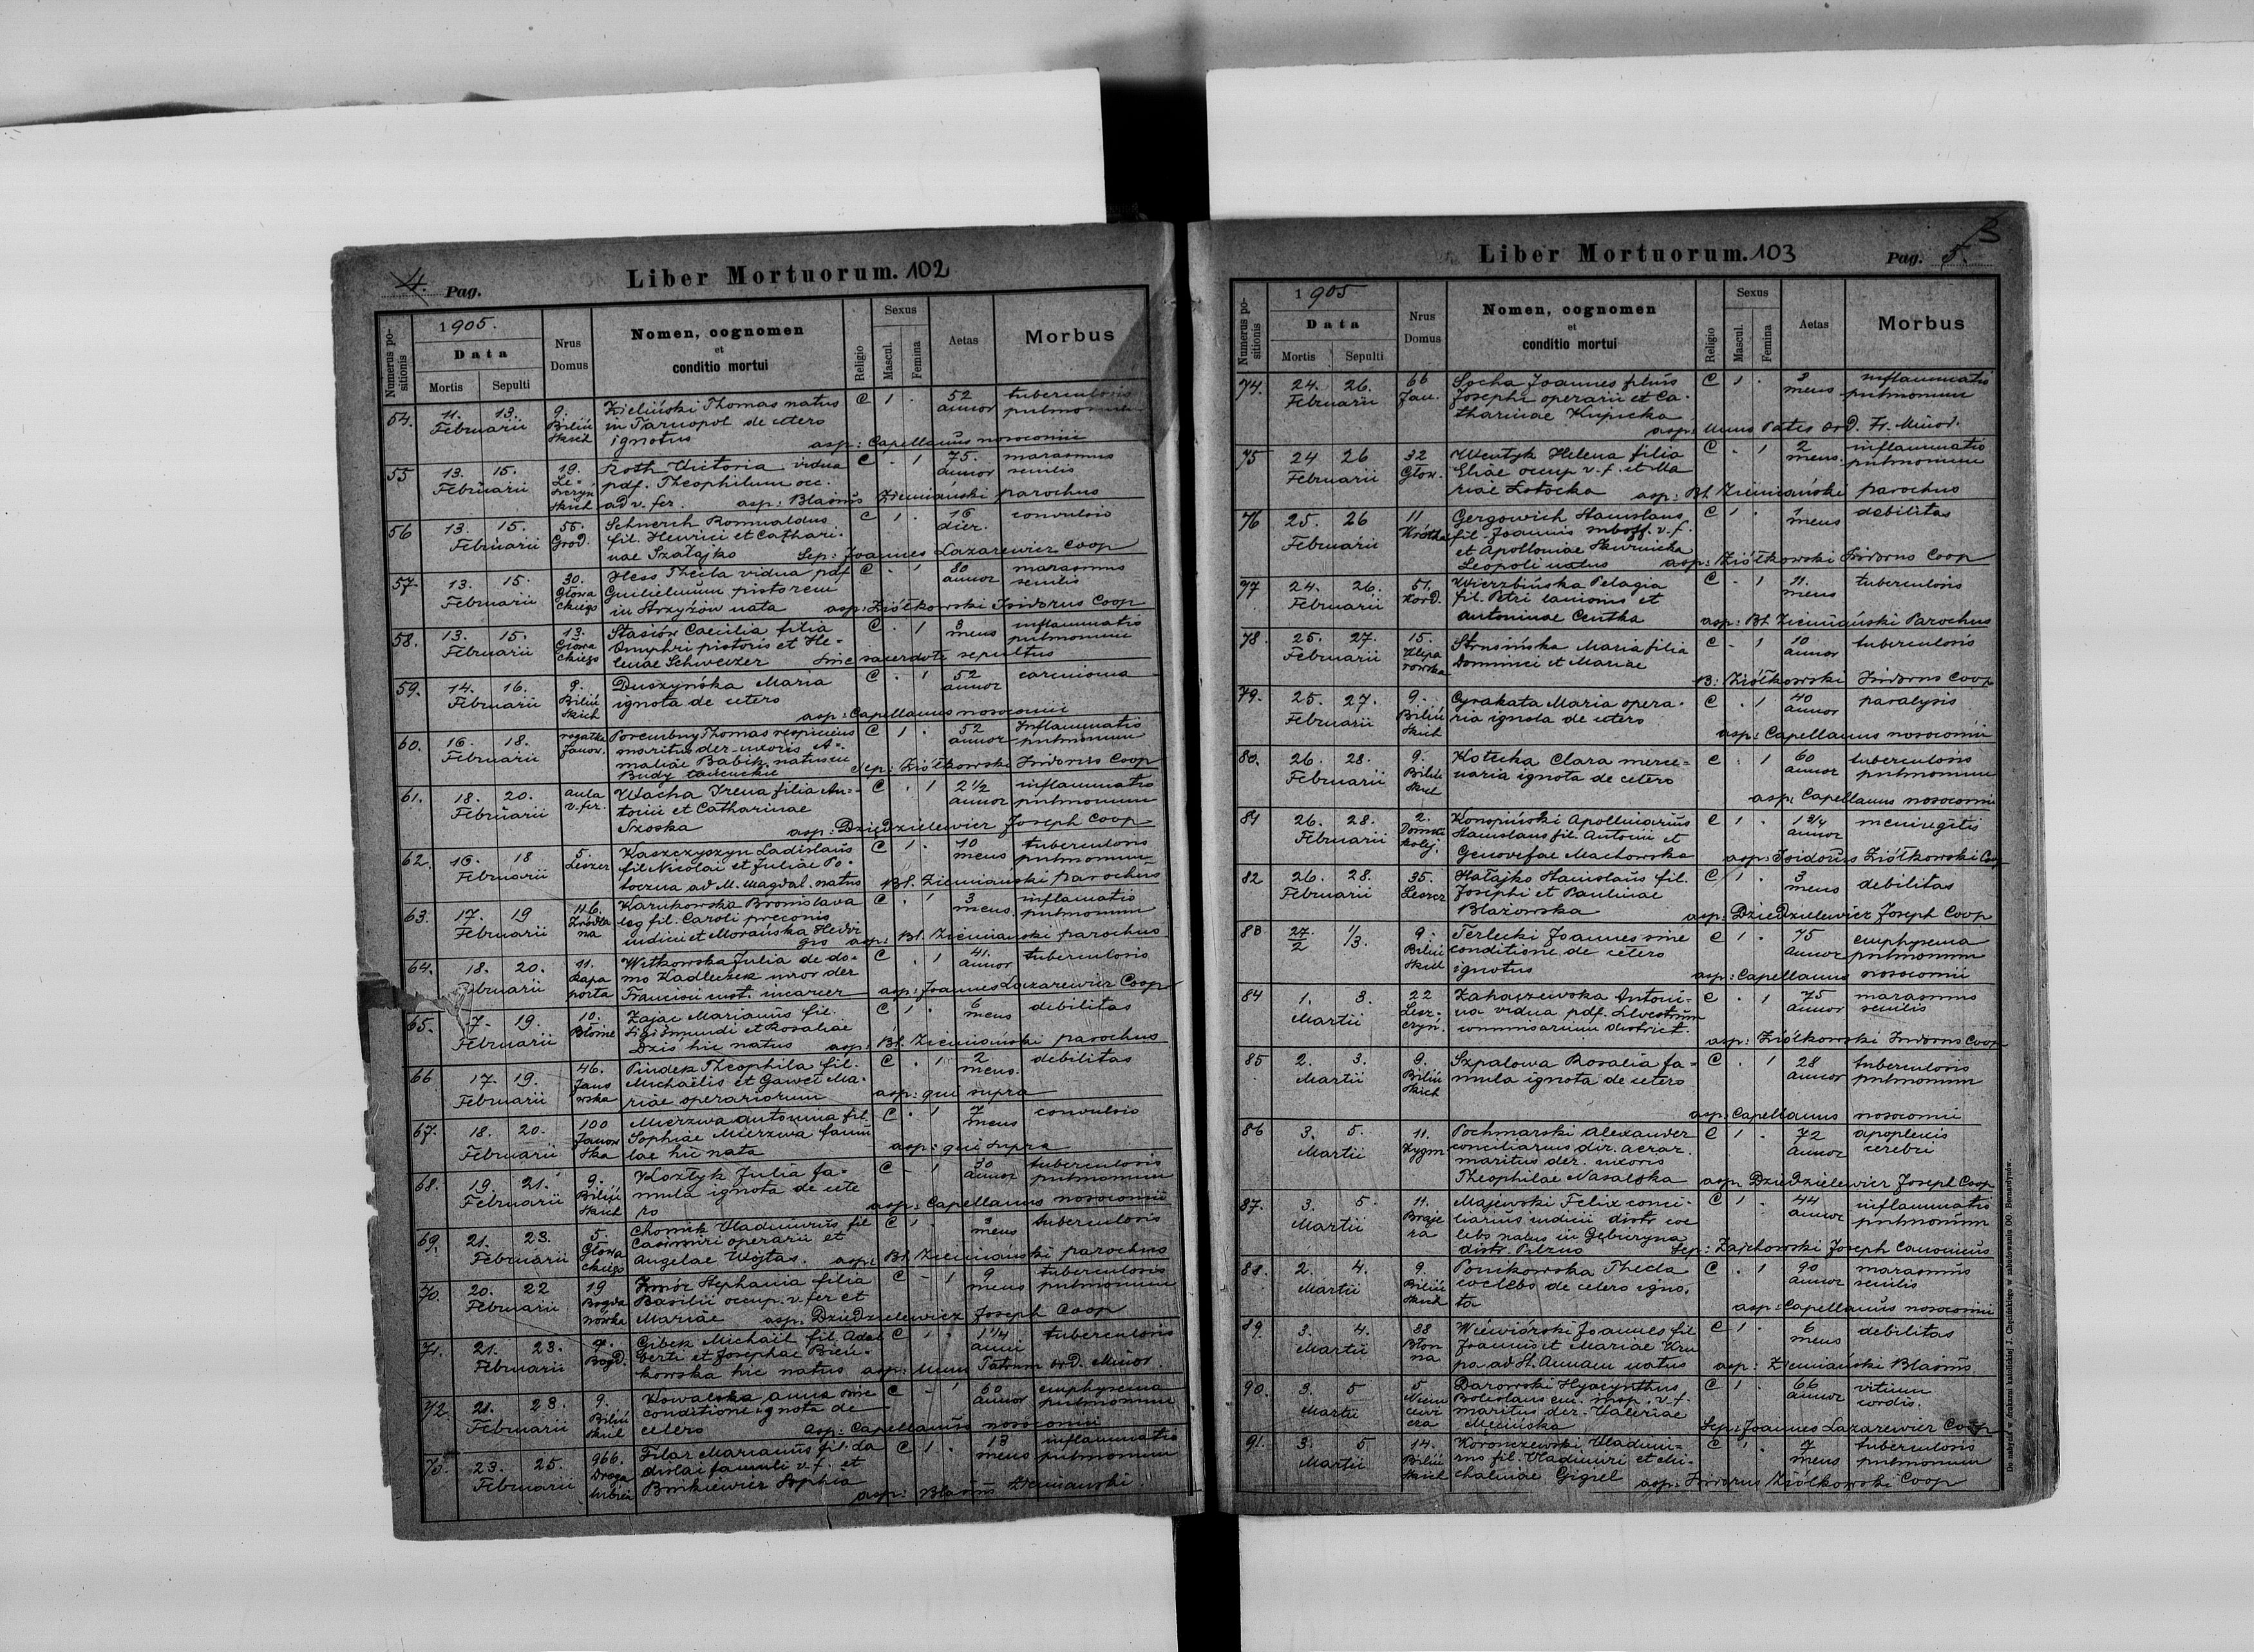 4. Pag.
Liber Mortuorum. 102
Numerus positionis
1905.
Data
Mortis
Sepulti
Nrus Domus
Nomen, cognomen
et
conditio mortui
Religio
Sexus
Mascul.
Femina
Aetas
Morbus
54. 11. 13. 9. Zieliński Thomas natus C 1 . 52 tuberculosis
Februarii Biliń in Tarnopol de cetero annor pulmonum
skich ignotus asp: Capellanus nosocomii
55 13. 15. 19. Roth Victoria vidua C . 1 75. marasmus
Februarii Le- pdf. Theophilum occ. annor senilis
szczyń
skich ad v. fer. asp: Blasius Ziemiański parochus
56 13. 15. 55. Schnerch Romualdus C 1 . 16 convulsio
Februarii Grod. fil. Henrici et Cathari- dier.
nae Szałajko Sep: Joannes Lazarewicz Coop
57. 13. 15. 30. Hess Thecla vidua pdf C . 1 80 marasmus
Februarii Głowa Guilielmum pistorem annor senilis
ckiego in Strzyżów nata asp: Ziółkowski Isidorus Coop
58. 13. 15. 13. Stasiów Caecilia filia C . 1 3 inflammatio
Februarii Głowa Onuphri pistoris et He- mens pulmonum
ckiego lenae Schweizer sine sacerdote sepultus
59. 14. 16. 9. Duszyńska Maria C . 1 52 carcinoma
Februarii Biliń ignota de cetero annor
skich asp: Capellanus nosocomii
60. 16. 18. rogatka Thomas C 1 . 52 Inflammatio
Februarii Janow. maritus der. uxoris A- annor pulmonum
maliae Babik, natus in
Budy łańcuckie Sep: Ziółkowski Isidorus Coop
61. 18. 20. aula Wacha Irena filia An- C . 1 2 1/2 inflammatio
Februarii v. fer. tonii et Catharinae annor pulmonum
Szoska asp: Dziędzielewicz Joseph Coop
62. 16. 18 5. Kaszczyszyn Ladislaus C 1 . 10 tuberculosis
Februarii Leszcz fil Nicolai et Juliae Po- mens pulmonum
toczna ad M. Magdal. natus Bl. Ziemiański parochus
63. 17. 19 Karukowska Bronislava C . 1 3 inflamatio
Februarii Źródla leg fil. Caroli preconis mens. pulmonum
na iudicii et Morańska Hedvi
gis asp: Bl. Ziemiański parochus
64. 18. 20. 11. Witkowska Julia de do- C . 1 41. tuberculosis
Februarii Rapa mo Kadleczek uxor der annor
porta Francisci cust. incarcer asp: Joannes Lazarewicz Coop
65. 17. 19. 10. Zając Marianus fil. C 1 . 6 debilitas
Februarii Błonie Sigismundi et Rosaliae mens
Dziś hic natus asp: Bl. Ziemiański parochus
66 17. 19. 46. Pindek Theophila fil. C . 1 2 debilitas
Februarii Jano Michaelis et Gawci Ma- mens.
wska riae operariorum asp: qui supra
67. 18. 20. 100 Mierzwa Antonina fil. C . 1 7 convulsio
Februarii Janow Sophiae Mierzwa famu mens
ska lae hic nata asp: qui supra
68. 19. 21. 9. Kosztyk Julia fa- C - 1 30 tuberculosis
Februarii Biliń mula ignota de cete annor pulmonum
skich ro asp: Capellanus nosocomii
69. 21. 23. 5. Chomik Vladimirus fil C 1 . 3 tuberculosis
Februarii Głowa Casimiri operarii et mens
ckiego Angelae Wojtas. asp: Bl. Ziemiański parochus
70. 20. 22 19 Żmór Stephania filia C - 1 9 tuberculosis
Februarii Bogda Basilii occup. v. fer et mens pulmonum
nówka Mariae asp: Dziędzielewicz Joseph Coop
71. 21. 23. 9. Gibek Michaël fil. Adal C 1 . 1 1/4 tuberculosis
Februarii Bogd. berti et Josephae Bień- anni
kowska hic natus asp: unus Patrum ord. Minor.
72. 21. 23. 9. Kowalska Anna sine C - 1 60 emphysema
Februarii Biliń conditione ignota de annor pulmonum
skich cetero Asp: Capellanus nosocomii
73. 23. 25. 966. Filar Marianus fil. La C 1 . 13 inflammatio
Februarii Droga dislai famuli v. f. et mens pulmonum
Sophia asp: Blasius Ziemiański
3
Liber Mortuorum. 103
Pag. 5.
Numerus positionis
1905
Data
Mortis
Sepulti
Nrus Domus
Nomen, cognomen
et
conditio mortui
Religio
Sexus
Mascul.
Femina
Aetas
Morbus
74. 24. 26. 66 Socha Joannes filius C 1 . 3 inflammatio
Februarii Jan. Josephi operarii et Ca- mens pulmonum
tharinae Kupicka
asp: unus Patrum ord. Fr. Minor.
75 24 26 32 Wentyk Helena filia C . 1 2 inflammatio
Februarii Głow. Eliae occup v. f. et Ma mens. pulmonum
riae Łotocka asp: Bl. Ziemiański parochus
76 25. 26 11 Gergowich Stanislaus C 1 . 1 debilitas
Februarii Krótka fil. Joannis suboff. v. f. mens
et Apolloniae Skurnicka
Leopoli natus asp: Ziółkowski Isidorus Coop
77 24. 26. 51. Wierzbińska Pelagia C - 1 11. tuberculosis
Februarii Kord. fil. Petri lanionis et mens
Antoninae Centka asp: Bl. Ziemiański Parochus
78. 25. 27. 15. Strusińska Maria filia C - 1 10 tuberculosis
Februarii Klepa Dominici et Mariae annor
rowska B: Ziółkowski Isidorus Coop
79. 25. 27. 9. Cyrakata Maria opera- C . 1 40 paralysis
Februarii Biliń ria ignota de cetero annor
skich asp: Capellanus nosocomii
80. 26. 28. 9. Kotecka Clara merce- C . 1 60 tuberculosis
Februarii Biliń naria ignota de cetero annor pulmonum
skich
asp: Capellanus nosocomii
81 26. 28. 2. Konopiński Apollinarius C 1 . 1 3/4 meningitis
Februarii Domki Stanislaus fil. Antonii et annor
kolej. Genovefae Machowska asp: Isidorus Ziółkowski Coop
82 26. 28. 35. Hałajko Stanislaus fil. C 1 . 3 debilitas
Februarii Leszcz Josephi et Paulinae mens
Błażowska asp: Dziędzielewicz Joseph Coop
83 27/2 1/3. 9. Terlecki Joannes sine C 1 . 75 emphysema
Biliń conditione de cetero annor pulmonum
skich ignotus asp: Capellanus nosocomii
84 1. 3. 22 Zahaszewska Antoni- C . 1 75 marasmus
Martii Lesz- na vidua pdf. Silvestrum annor senilis
czyń. commisarium district.
asp: Ziółkowski Isidorus Coop
85 2. 3. 9. Szpalowa Rosalia fa- C . 1 28 tuberculosis
Martii Biliń mula ignota de cetero annor pulmonum
skich
asp: Capellanus nosocomii
86 3. 5. 11. Pochmarski Alexander C 1 . 72 apoplexis
Martii Zygm conciliarius dir. aerar. annor cerebri
maritus der. uxoris
Theophilae Nasalska asp Dziędzielewicz Joseph Coop
87. 3. 5. 11. Majewski Felix conci- C 1 . 44 inflammatio
Martii Braje liarius iudicii distr coe annor pulmonum
ra lebs natus in Gębiczyna
distr. Pilzno Sep: Zajchowski Joseph Canonicus
88. 2. 4. 9. Ponikowska Thecla C . 1 90 marasmus
Martii Biliń coelebs de cetero igno- annor senilis
skich ta asp: Capellanus nosocomii
89. 3. 4. 38 Wiewiórski Joannes fil C 1 . 6 debilitas
Martii Błon Joannis et Mariae Kru mens
na pa ad St. Annam natus asp: Ziemiański Blasius
90. 3. 5 5 Darowski Hyacynthus C 1 . 66 vitium
Martii Niem Boleslaus em. insp. v. f. annor cordis.
cewi maritus der. Valeriae
cza Męcińska Sep: Joannes Lazarewicz Coop
91. 3. 5 14. Koronczewski Vladimi- C 1 . 7 tuberculosis
Martii Biliń rus fil. Vladimiri et Mi- mens pulmonum
skich chalinae Gigiel asp: Isidorus Ziółkowski Coop
Do nabycia w drukarni katolickiej J. Chęcińskiego w zabudowaniu OO. Bernardynów.